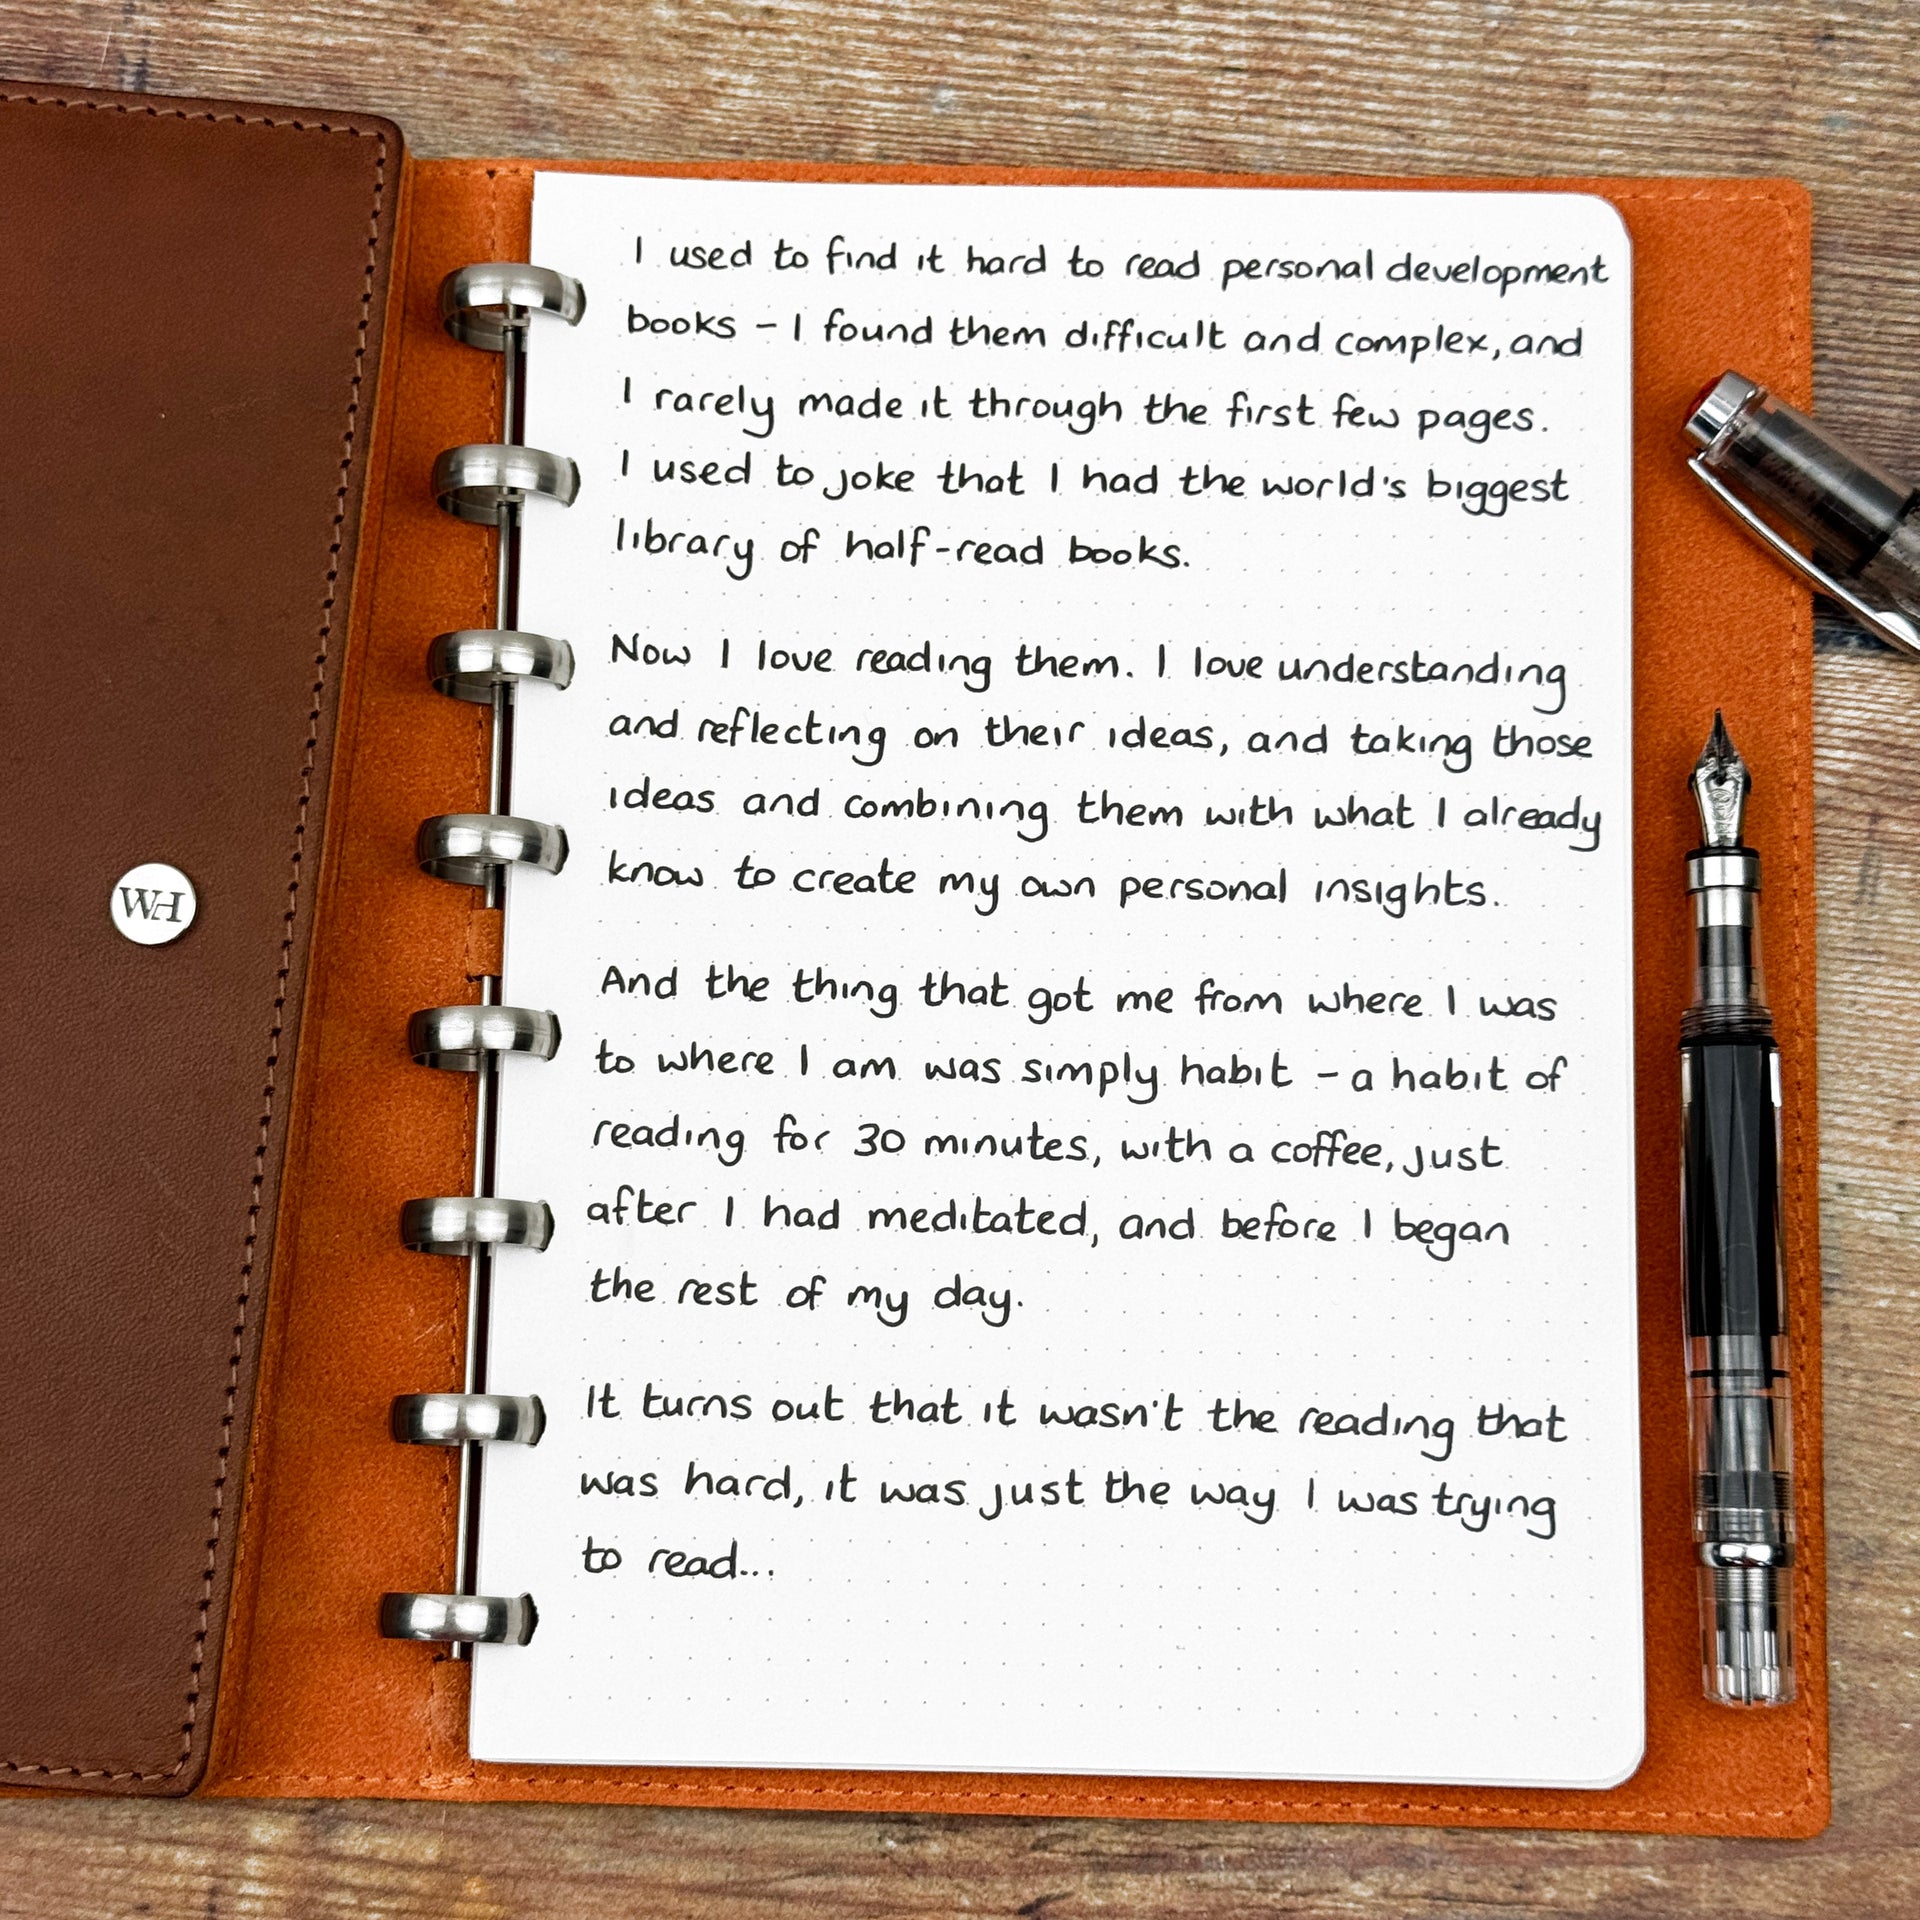 WH
I used to find it hard to read personal development
books – I found them difficult and complex, and
I rarely made it through the first few pages.
I used to joke that I had the world's biggest
library of half-read books.
Now I love reading them. I love understanding
and reflecting on their ideas, and taking those
ideas and combining them with what I already
know to create my own personal insights.
And the thing that got me from where I was
to where I am was simply habit – a habit of
reading for 30 minutes, with a coffee, just
after I had meditated, and before I began
the rest of my day.
It turns out that it wasn't the reading that
was hard, it was just the way I was trying
to read...